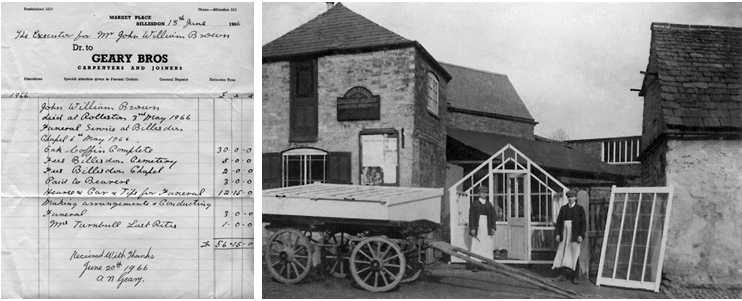 Established
Phone—Billesdon
MARKET PLACE
BILLESDON 13th June 1966
The Executor for Mr John William Brown
Dr. to
GEARY BROS
CARPENTERS AND JOINERS
Alterations
Special attention given to Funeral Orders
General Repairs
Estimates Free
1966 £ s d
John William Brown
died at Rolleston 3rd May 1966
Funeral Service at Billesdon
Chapel 6th May 1966
Oak Coffin Complete 30-0-0
Fees Billesdon Cemetery 5-0-0
Fees Billesdon Chapel 2-0-0
Paid to Bearers 3-0-0
Hearse & Car & Tips for Funeral 12-15-0
Making arrangements & Conducting
Funeral 3-0-0
Mrs Turnbull Last Rites 1-0-0
£ 56-15-0
Received With Thanks
June 20th 1966
A N Geary.